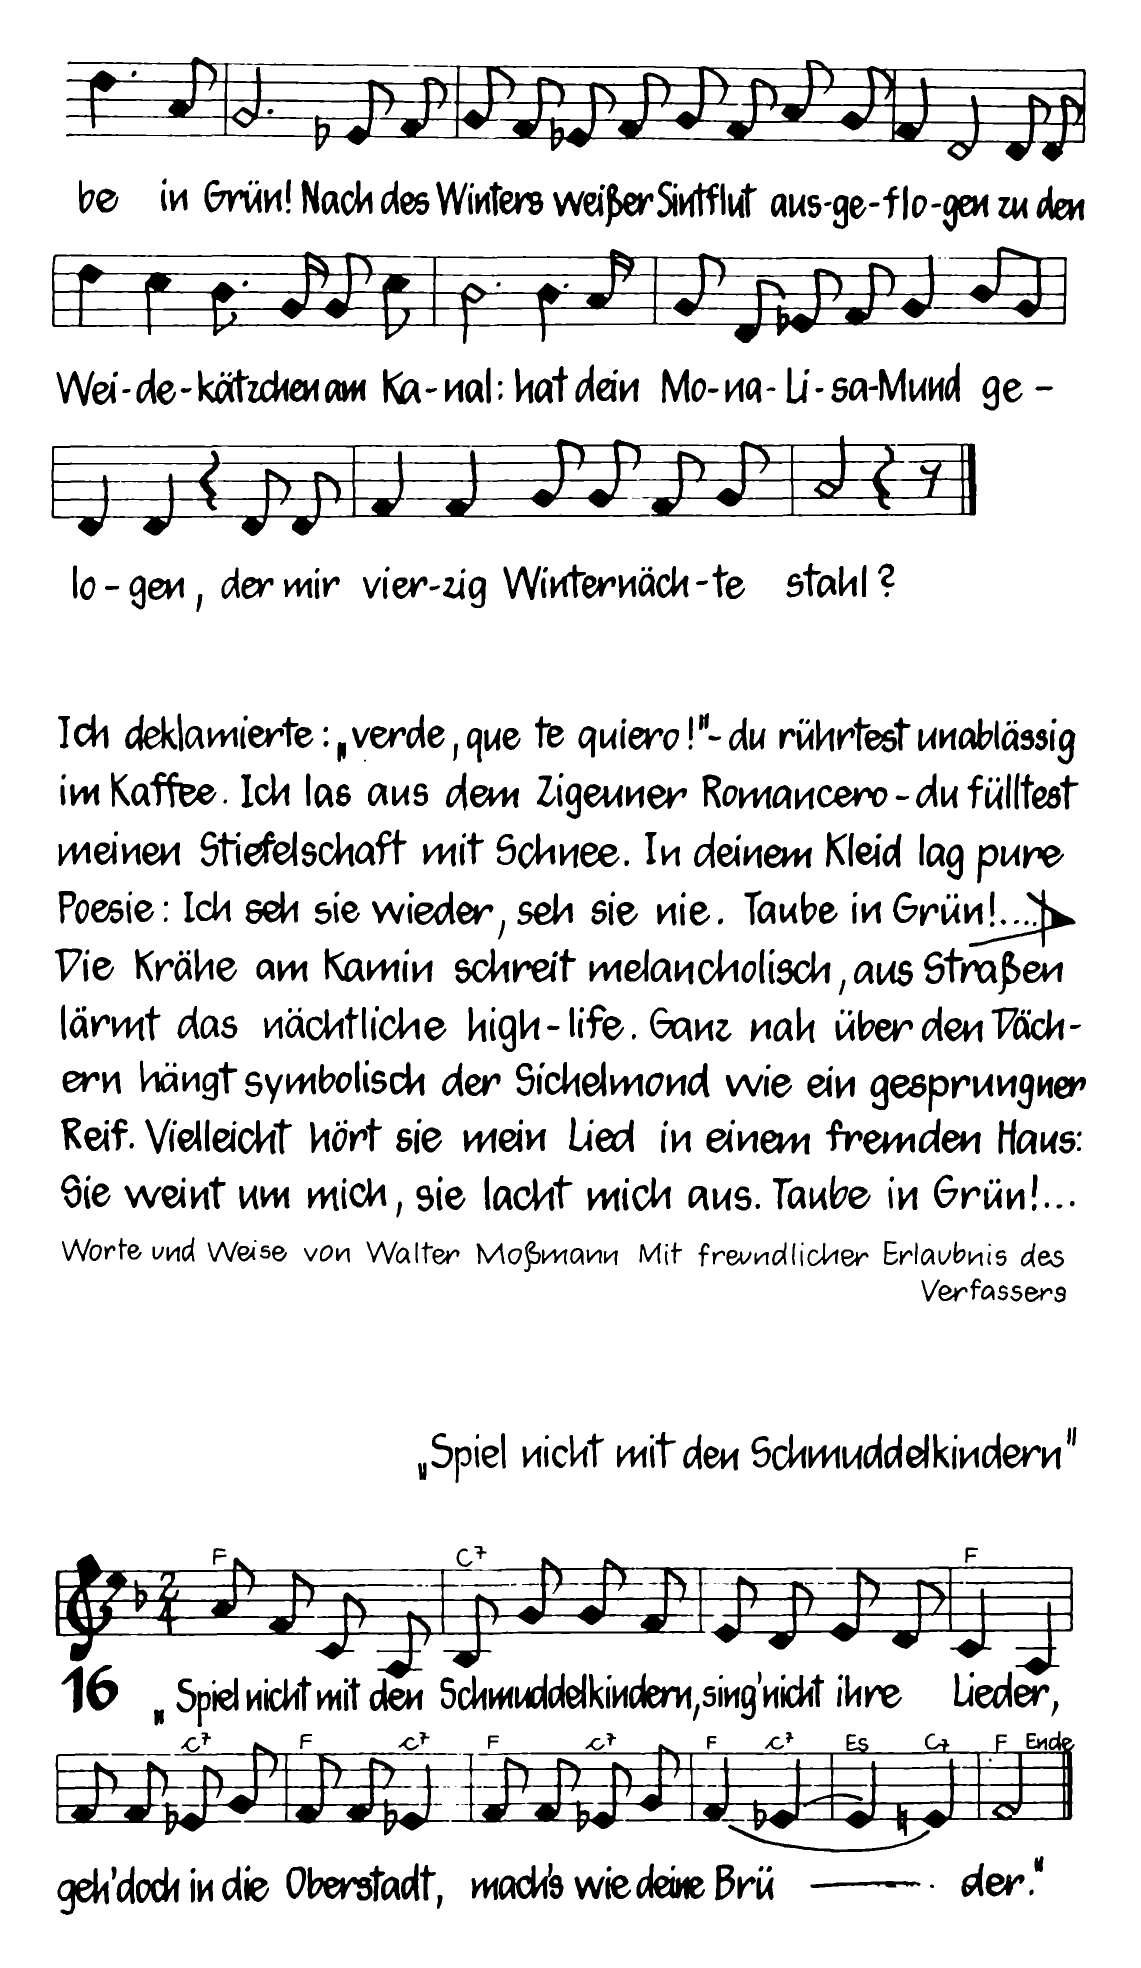 be in Grün! Nach des Winters weißer Sintflut aus-ge-flo-gen zu den
Wei-de-kätzchen am Ka-nal: hat dein Mo-na-Li-sa-Mund ge-
lo-gen, der mir vier-zig Winternäch-te stahl?
Ich deklamierte: „verde, que te quiero!"- du rührtest unablässig
im Kaffee. Ich las aus dem Zigeuner Romancero - du fülltest
meinen Stiefelschaft mit Schnee. In deinem Kleid lag pure
Poesie: Ich seh sie wieder, seh sie nie. Taube in Grün!....
Die Krähe am Kamin schreit melancholisch, aus Straßen
lärmt das nächtliche high-life. Ganz nah über den Däch-
ern hängt symbolisch der Sichelmond wie ein gesprungner
Reif. Vielleicht hört sie mein Lied in einem fremden Haus:
Sie weint um mich, sie lacht mich aus. Taube in Grün!...
Worte und Weise von Walter Moßmann Mit freundlicher Erlaubnis des
Verfassers
„Spiel nicht mit den Schmuddelkindern"
F C7 F
2
4
16 „Spiel nicht mit den Schmuddelkindern, sing' nicht ihre Lieder,
C7 F C7 F C7 F C7 Es C7 F Ende
geh' doch in die Oberstadt, mach's wie deine Brü — der."